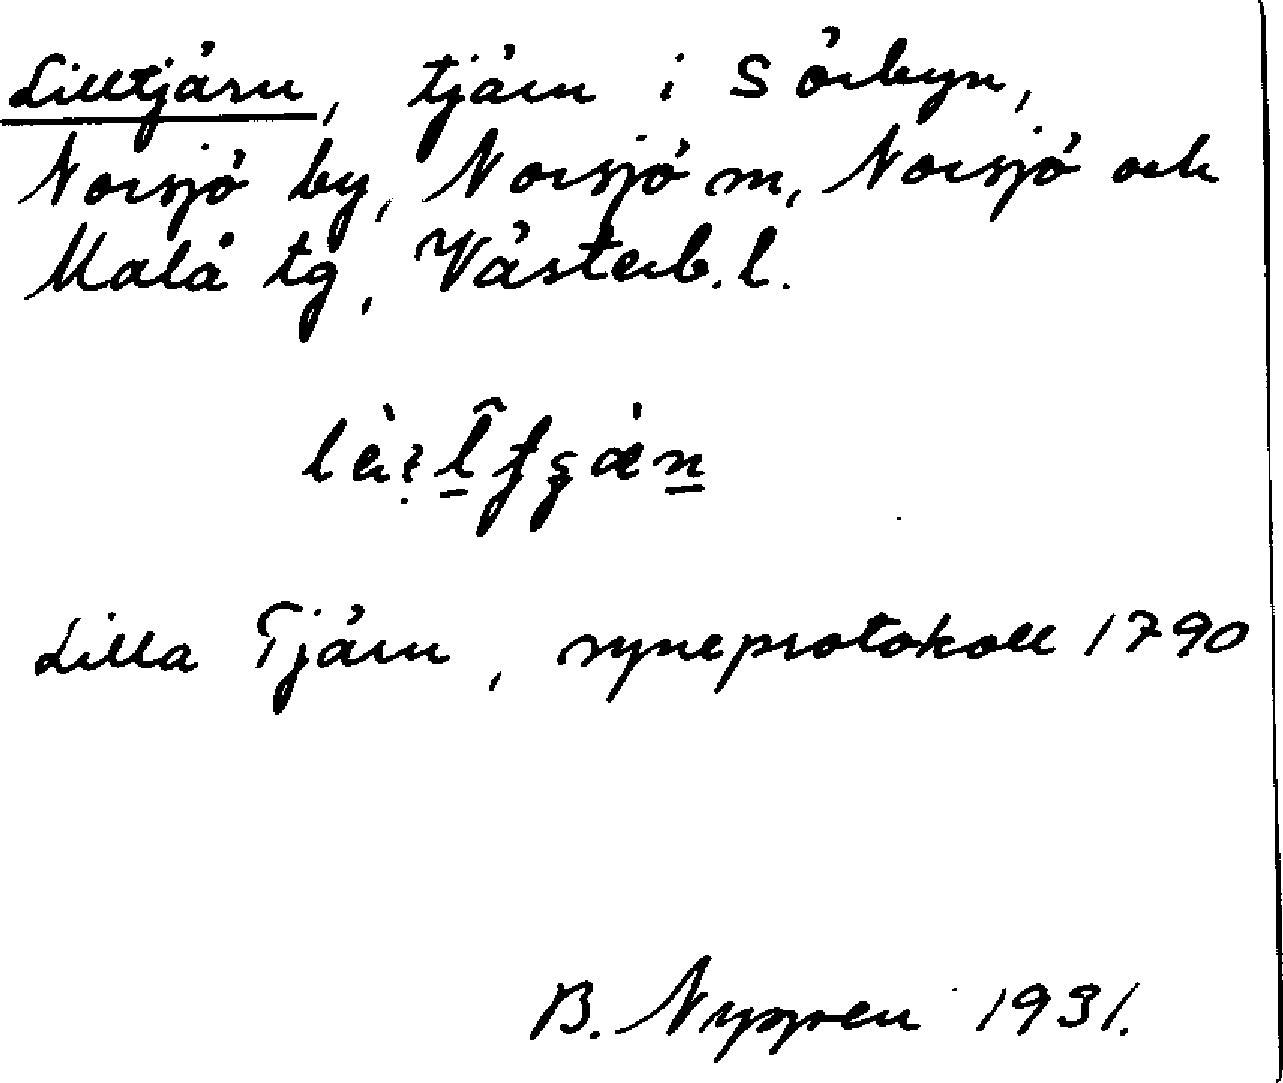 Lilltjärn, tjärn i Sörbyn,
Norsjö by, Norsjö sn, Norsjö och
Malå tg, Västerb. l.
Lilla Tjärn, syneprotokoll 1790
B. 1931.